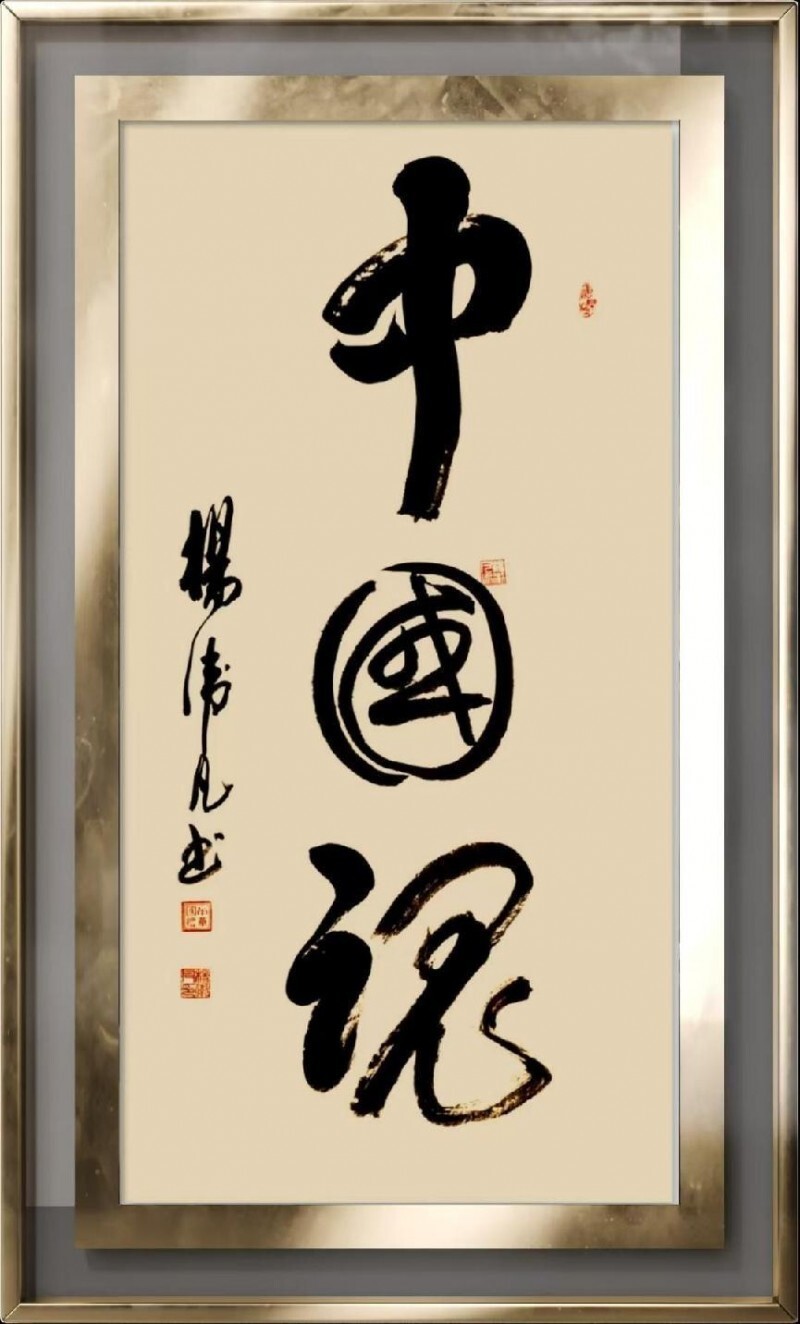 中國魂
楊濤凡书